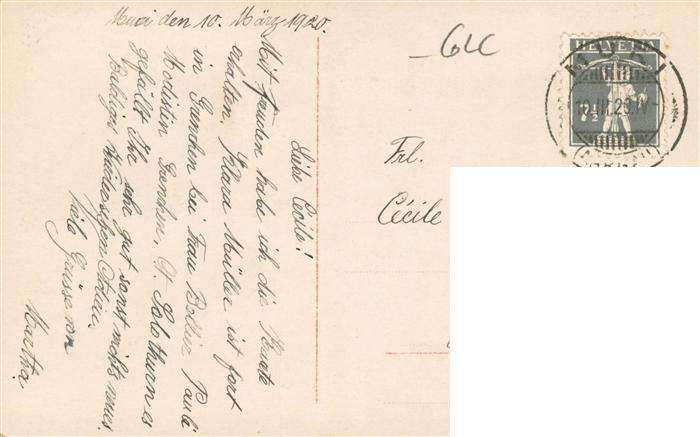 Muri den 10. März 1920.
Liebe Cecile!
Mit freuden habe ich die Karte
erhalten, Klara Müller ist fort
in Gunchen bei Frau Pauli
Modistin Gunchen, Kt. Solothurn es
gefällt Ihr sehr gut sonst nichts neues.
Baldiges Wiedersehen
Viele Grüsse von
Martha.
6LC
HELVETIA
7½
MURI
10.III.20.IV
Frl.
Cécile